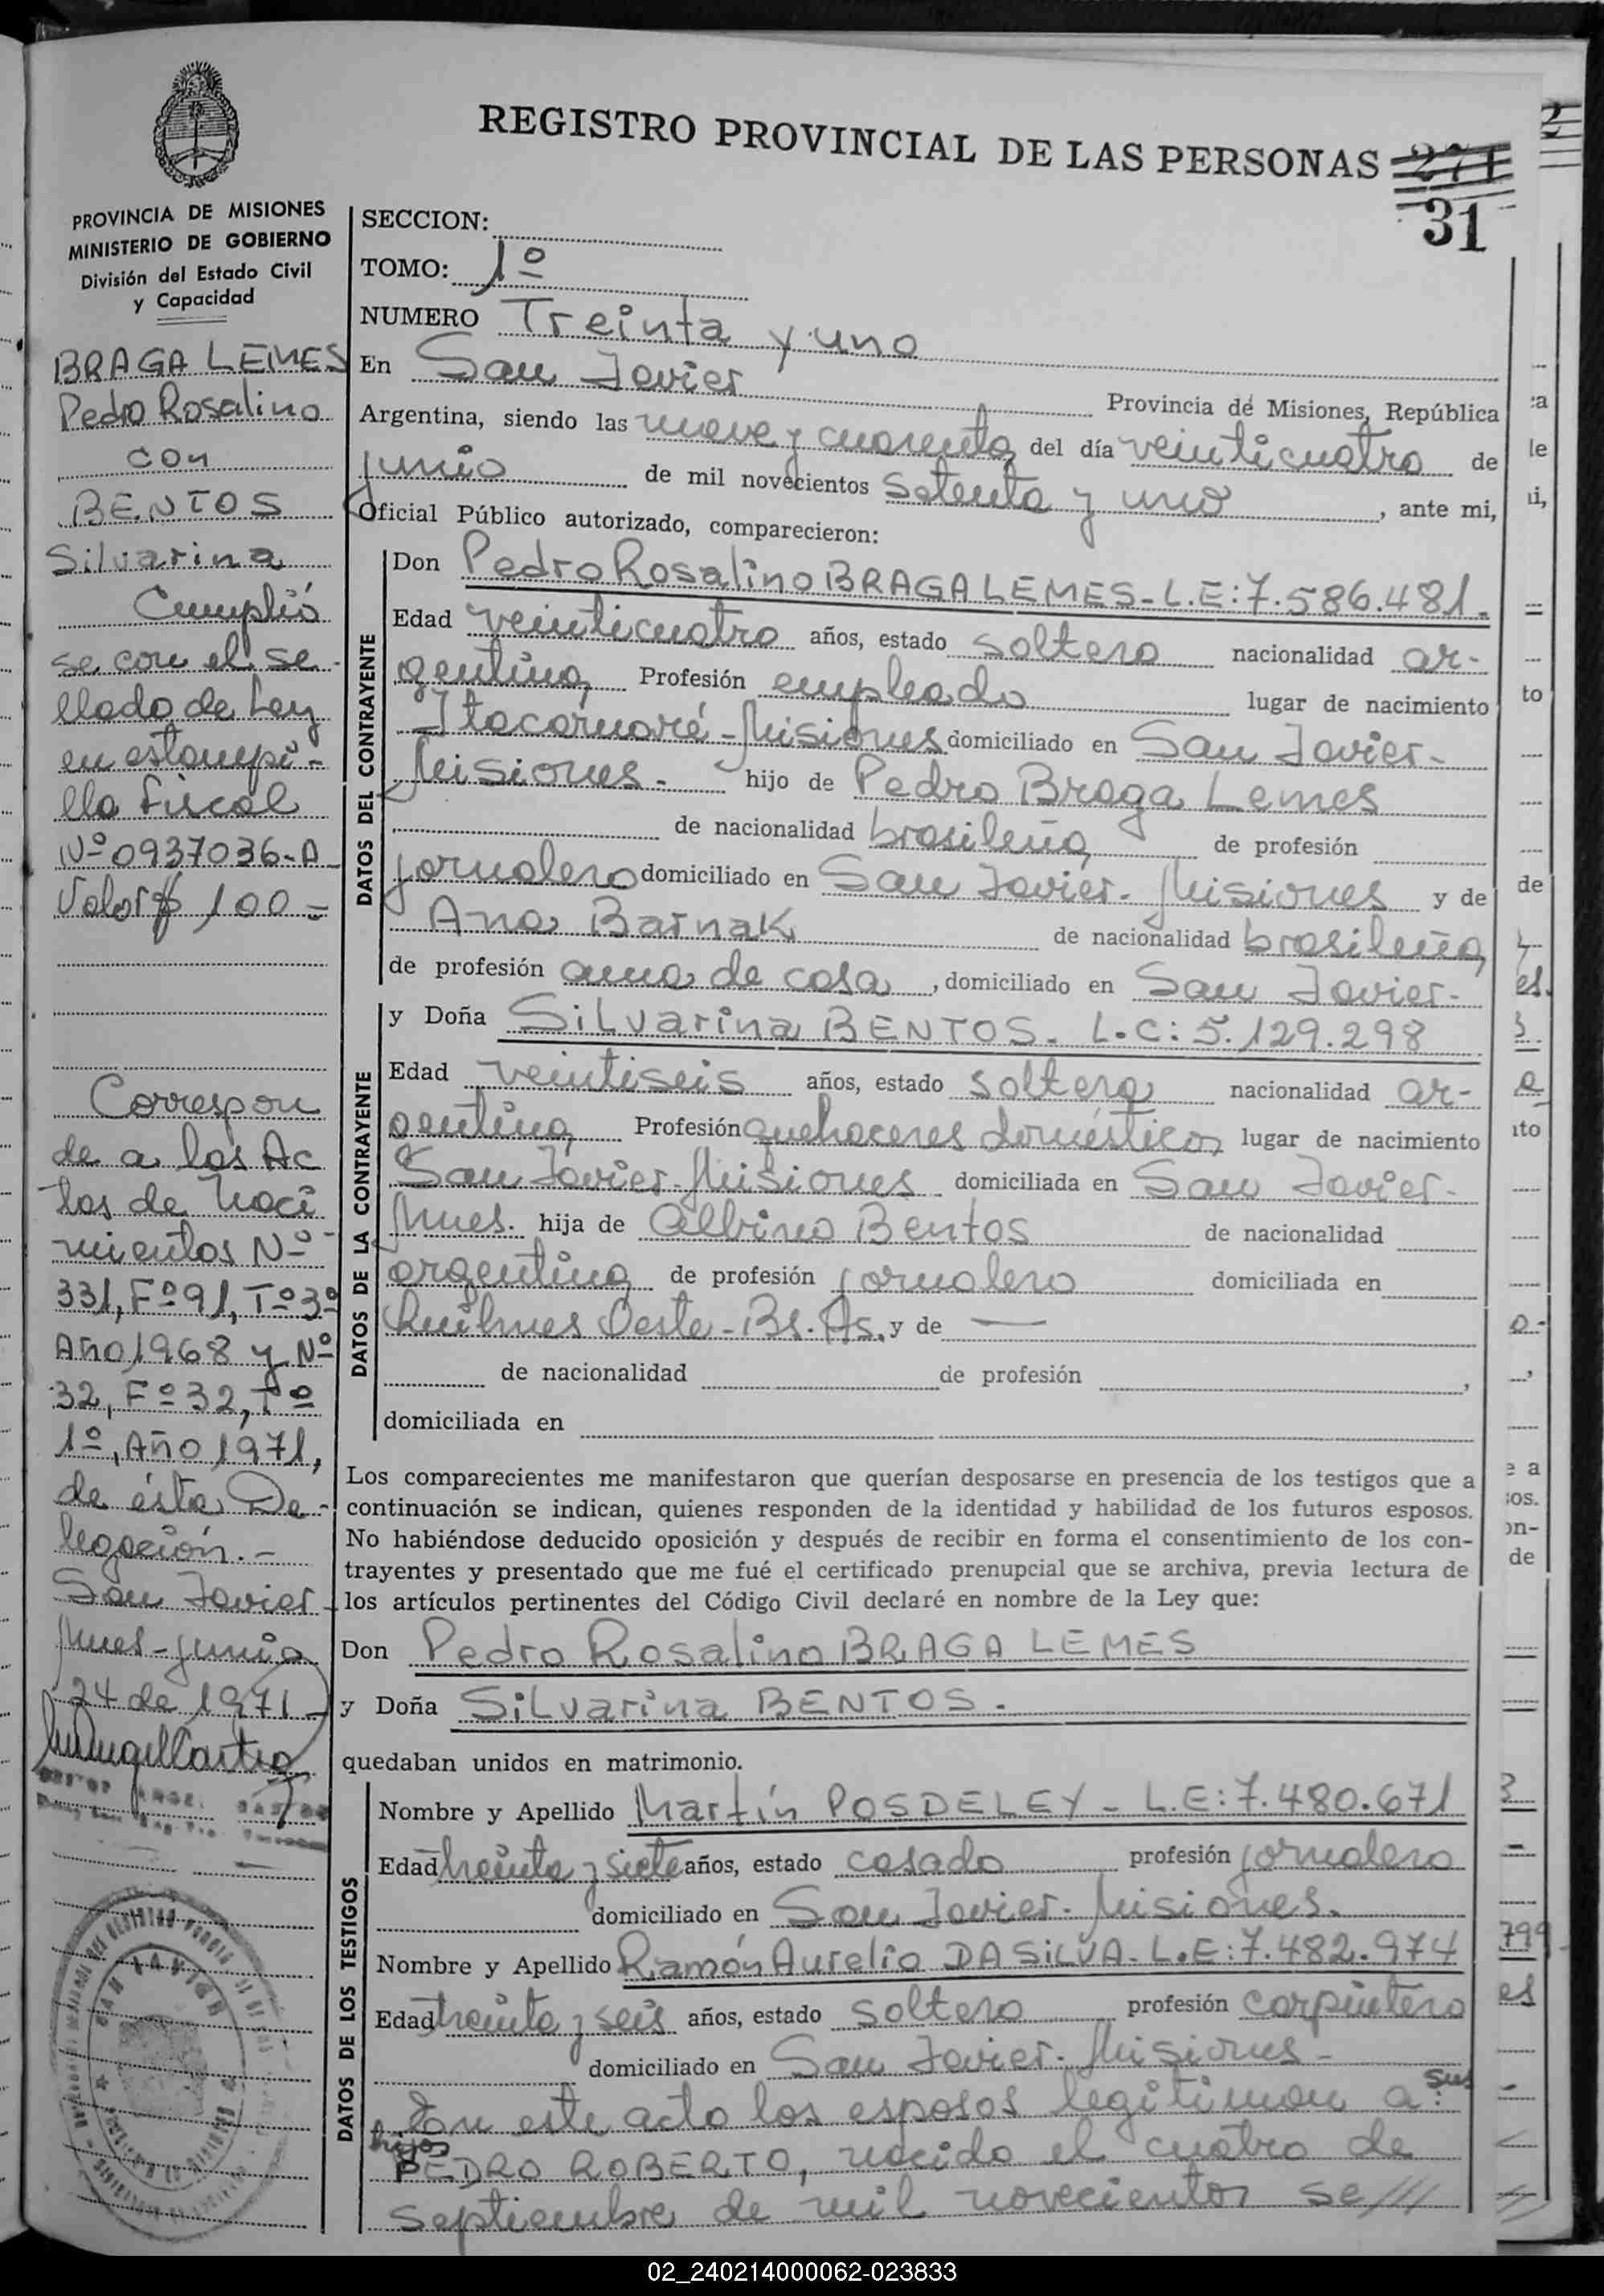 REGISTRO PROVINCIAL DE LAS PERSONAS
271
31
PROVINCIA DE MISIONES
MINISTERIO DE GOBIERNO
División del Estado Civil
y Capacidad
BRAGA LEMES
Pedro Rosalino
con
BENTOS
Silvarina
Cumplió
se con el se
llado de Ley
en estampi-
lla fiscal
Nº 0937036-A
Valor $ 100-
Correspon
de a las Ac
tas de Naci
mientos Nº
331, Fº 91, Tº 3º
Año 1968 y Nº
32, Fº 32, Tº
1º, Año 1971,
de ésta De-
legación.-
San Javier
Mnes-junio
24 de 1971-
SECCION:
TOMO: 1º
NUMERO Treinta y uno
En San Javier Provincia de Misiones, República
Argentina, siendo las nueve y cuarenta del día veinticuatro de
junio de mil novecientos setenta y uno, ante mi,
Oficial Público autorizado, comparecieron:
DATOS DEL CONTRAYENTE
Don Pedro Rosalino BRAGA LEMES-L.E:7.586.481.
Edad veinticuatro años, estado soltero nacionalidad ar-
gentina Profesión empleado lugar de nacimiento
Itacaruaré-Misiones domiciliado en San Javier-
Misiones- hijo de Pedro Braga Lemes
de nacionalidad brasileña de profesión
jornalero domiciliado en San Javier-Misiones y de
Ana Barnak de nacionalidad brasileña
de profesión ama de casa, domiciliado en San Javier-
DATOS DE LA CONTRAYENTE
y Doña Silvarina BENTOS. L.C: 5.129.298
Edad veintiseis años, estado soltera nacionalidad ar-
gentina Profesión quehaceres domésticos lugar de nacimiento
San Javier-Misiones domiciliada en San Javier-
Mnes. hija de Albino Bentos de nacionalidad
argentina de profesión jornalero domiciliada en
Quilmes Oeste-Bs.As. y de —
de nacionalidad de profesión ,
domiciliada en
Los comparecientes me manifestaron que querían desposarse en presencia de los testigos que a
continuación se indican, quienes responden de la identidad y habilidad de los futuros esposos.
No habiéndose deducido oposición y después de recibir en forma el consentimiento de los con-
trayentes y presentado que me fué el certificado prenupcial que se archiva, previa lectura de
los artículos pertinentes del Código Civil declaré en nombre de la Ley que:
Don Pedro Rosalino BRAGA LEMES
y Doña Silvarina BENTOS.
quedaban unidos en matrimonio.
DATOS DE LOS TESTIGOS
Nombre y Apellido Martín POSDELEY- L.E:7.480.671
Edad treinta y siete años, estado casado profesión jornalero
domiciliado en San Javier-Misiones.
Nombre y Apellido Ramón Aurelio DA SILVA-L.E:7.482.974
Edad treinta y seis años, estado soltero profesión carpintero
domiciliado en San Javier-Misiones-
En este acto los esposos legitiman a: sus
hijos
PEDRO ROBERTO, nacido el cuatro de
septiembre de mil novecientos se///
SAN JAVIER
02_240214000062-023833